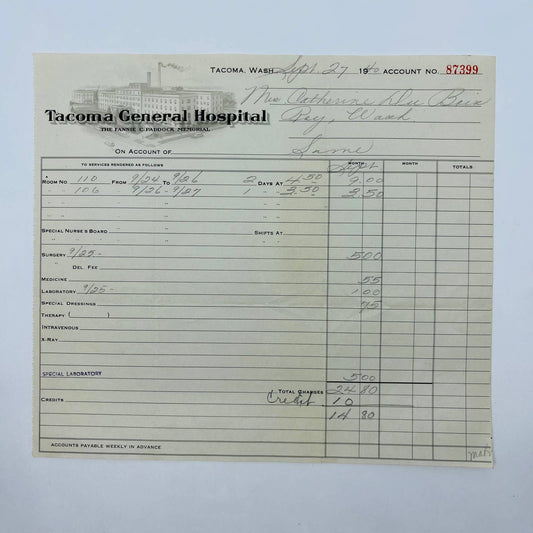 TACOMA, WASH Sept. 27 1940 ACCOUNT NO. 87399
Mrs Catherine Du Buis
Roy, Wash
Tacoma General Hospital
THE FANNIE C. PADDOCK MEMORIAL
ON ACCOUNT OF Same
TO SERVICES RENDERED AS FOLLOWS MONTH MONTH TOTALS
Sept
ROOM NO 110 FROM 9/24 TO 9/26 2 DAYS AT 4.50 9.00
" " 106 " 9/26 - 9/27 1 " " 3.50 3.50
SPECIAL NURSE'S BOARD SHIFTS AT
SURGERY 9/25 - 5.00
" DEL. FEE
MEDICINE 55
LABORATORY 9/25 - 1.00
SPECIAL DRESSINGS 75
THERAPY ( )
INTRAVENOUS
X-RAY
SPECIAL LABORATORY 5.00
TOTAL CHARGES 24 80
CREDITS Credit 10
14 80
ACCOUNTS PAYABLE WEEKLY IN ADVANCE